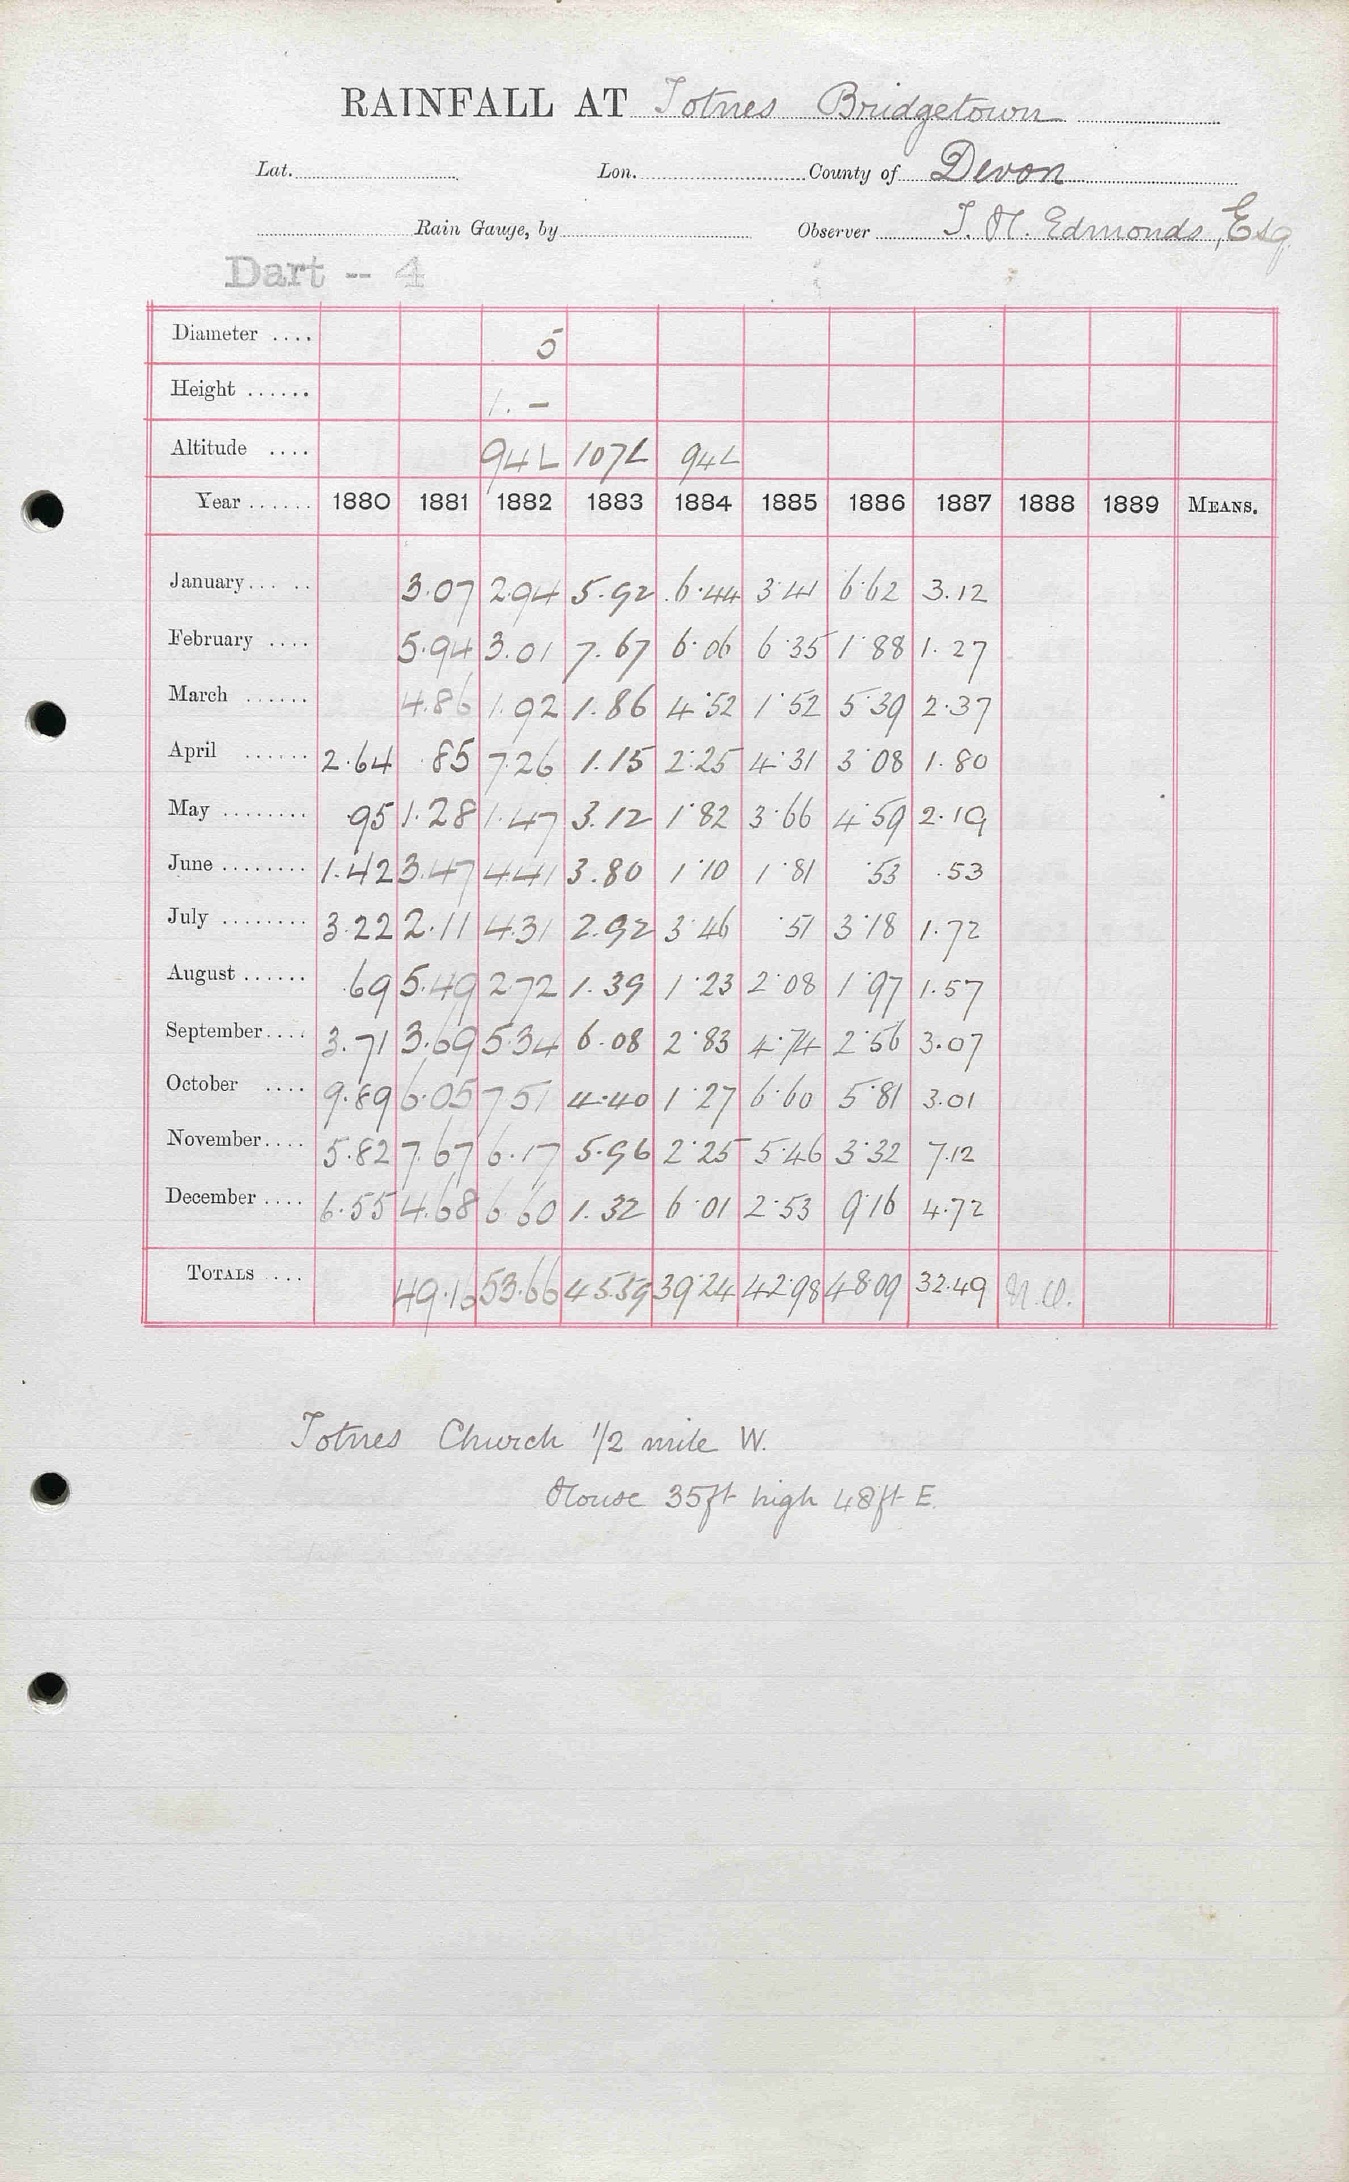 RAINFALL AT Totnes Bridgetown
Lat. Lon. County of Devon
Rain Gauge, by Observer T. H. Edmonds, Esq.
Dart -- 4
Diameter .... 5
Height ...... 1. –
Altitude .... 94L 107L 94L
Year ...... 1880 1881 1882 1883 1884 1885 1886 1887 1888 1889 MEANS.
January... .. 3.07 2.94 5.92 6.44 3.41 6.62 3.12
February .... 5.94 3.01 7.67 6.06 6.35 1.88 1.27
March ...... 4.86 1.92 1.86 4.52 1.52 5.39 2.37
April ...... 2.64 .85 7.26 1.15 2.25 4.31 3.08 1.80
May ........ .95 1.28 1.47 3.12 1.82 3.66 4.59 2.19
June ........ 1.42 3.47 4.41 3.80 1.10 1.81 .53 .53
July ........ 3.22 2.11 4.31 2.92 3.46 .51 3.18 1.72
August ...... .69 5.49 2.72 1.39 1.23 2.08 1.97 1.57
September.... 3.71 3.69 5.34 6.08 2.83 4.74 2.56 3.07
October .... 9.89 6.05 7.51 4.40 1.27 6.60 5.81 3.01
November.... 5.82 7.67 6.17 5.96 2.25 5.46 3.32 7.12
December .... 6.55 4.68 6.60 1.32 6.01 2.53 9.16 4.72
TOTALS .... 49.16 53.66 45.59 39.24 42.98 48.09 32.49
Totnes Church 1/2 mile W.
House 35ft high 48ft E.